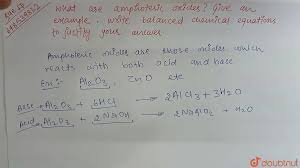 What are amphoteric oxides? Give an
example. write balanced chemical equations
to justify your answer
Amphoteric oxides are those oxides which
reacts with both acid and base
Ex:- Al2O3, ZnO etc
Base Al2O3 + 6HCl → 2AlCl3 + 3H2O
Acid Al2O3 + 2NaOH → 2NaAlO2 + H2O
doubtnut